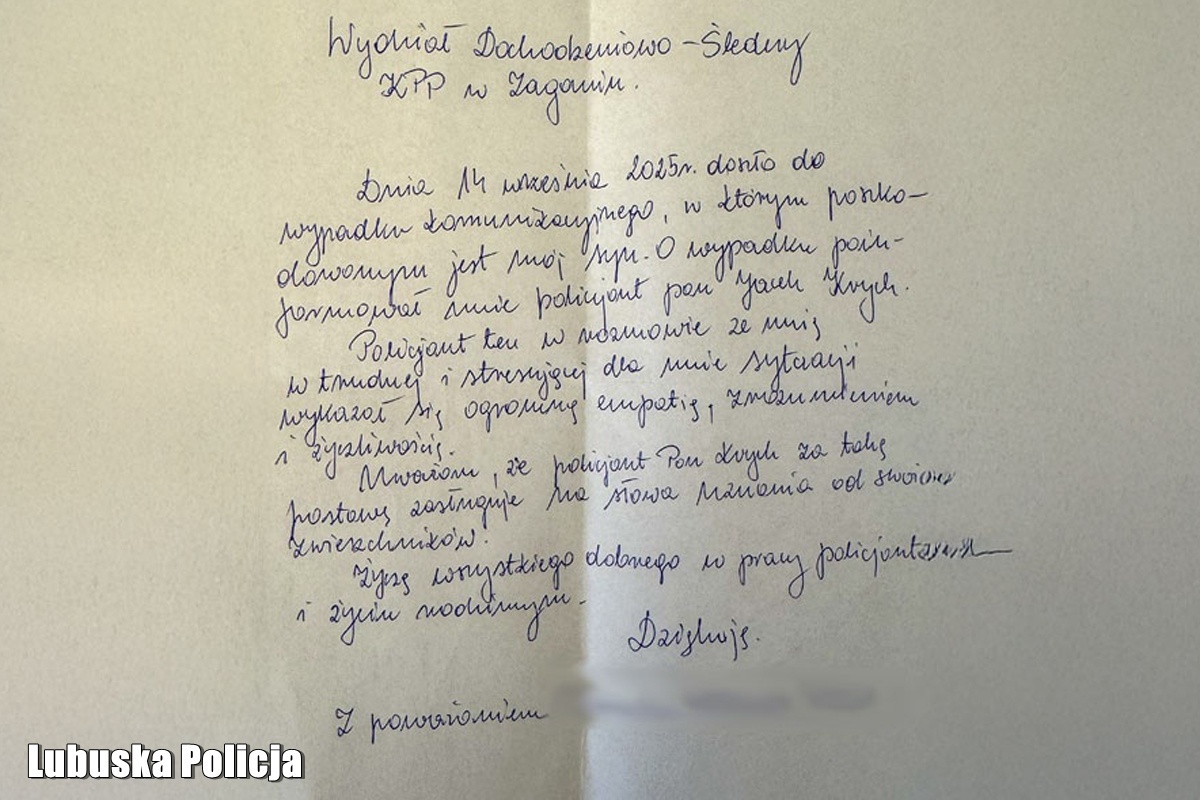 Wydział Dochodzeniowo-Śledczy
KPP w Żaganiu.
Dnia 14 września 2025r. doszło do
wypadku komunikacyjnego, w którym poszko-
dowanym jest mój syn. O wypadku poin-
formował mnie policjant pan Jacek Krych.
Policjant ten w rozmowie ze mną
w trudnej i stresującej dla mnie sytuacji
wykazał się ogromną empatią, zrozumieniem
i życzliwością.
Uważam, że policjant Pan Krych za taką
postawę zasługuje na słowa uznania od swoich
zwierzchników.
Życzę wszystkiego dobrego w pracy policjantów
i życiu rodzinnym.
Dziękuję.
Z poważaniem
Lubuska Policja